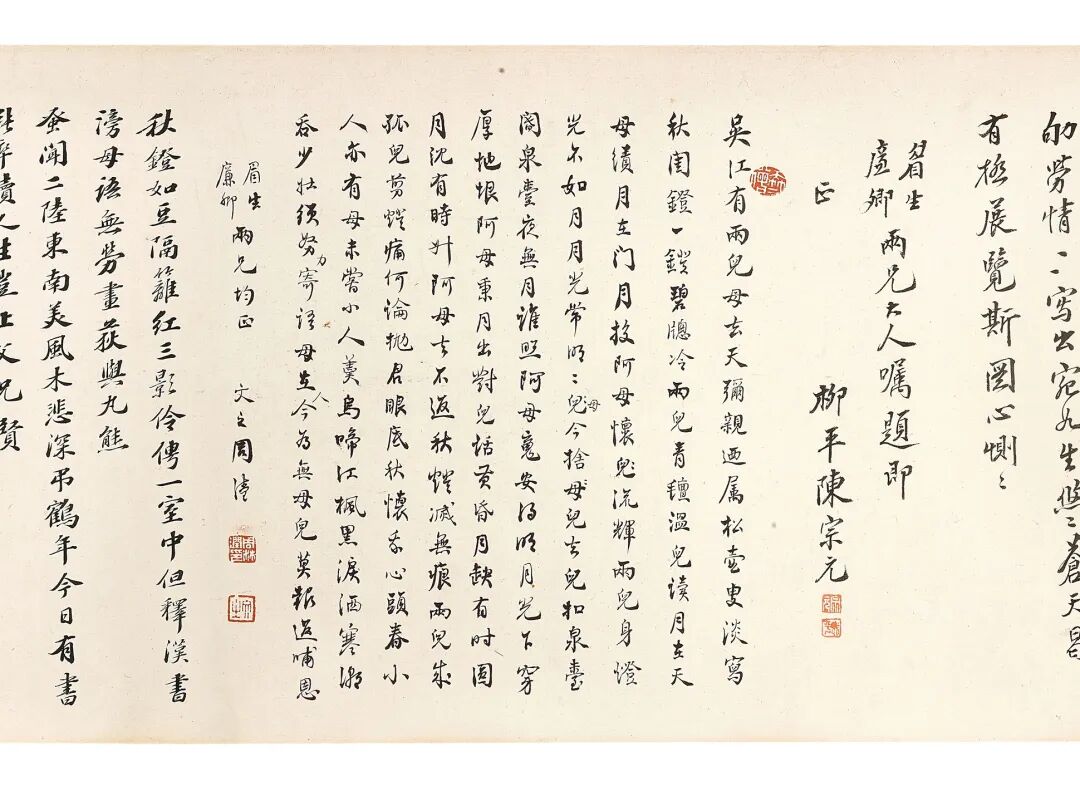 劬勞情一一寫出宛如生悠悠蒼天曷
有極展覽斯圖心惻惻
眉生
廉卿兩兄大人囑題即
正
柳平陳宗元
吳江有兩兒母去天彌親迺属松壺叟淡寫
秋閨鐙一鐙碧牕冷兩兒青氊溫兒讀月在天
母績月在门月投阿母懷鬼流輝兩兒身燈
光不如月月光帶明明兒母今捨母兒去兒和泉臺
閣泉臺夜無月誰照阿母魂安得明月光下穿
厚地恨阿母東月出對兒話黃昏月缺有时圆
月沈有時升阿母去不返秋鐙滅無痕兩兒成
孤兒剪鐙痛何論抛君眼底秋懷我心頭春小
人亦有母未嘗小人羹烏啼江楓黑淚洒寒潮
吞少壯須努力寄语母在人今為無母兒莫報過哺恩
眉生
廉卿兩兄均正
文之周濤
秋鐙如豆隔籬紅三影伶俜一室中但釋漢書
滂母語無勞畫荻與丸熊
蚤聞二陸東南美風木悲深弔鶴年今日有書
讀人生豈上父兄賢